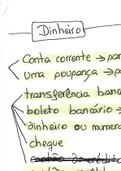 Dinheiro
Conta corrente → par
uma poupança → p
transferência banc
boleto bancário →
dinheiro ou numera
cheque
cartão de crédito